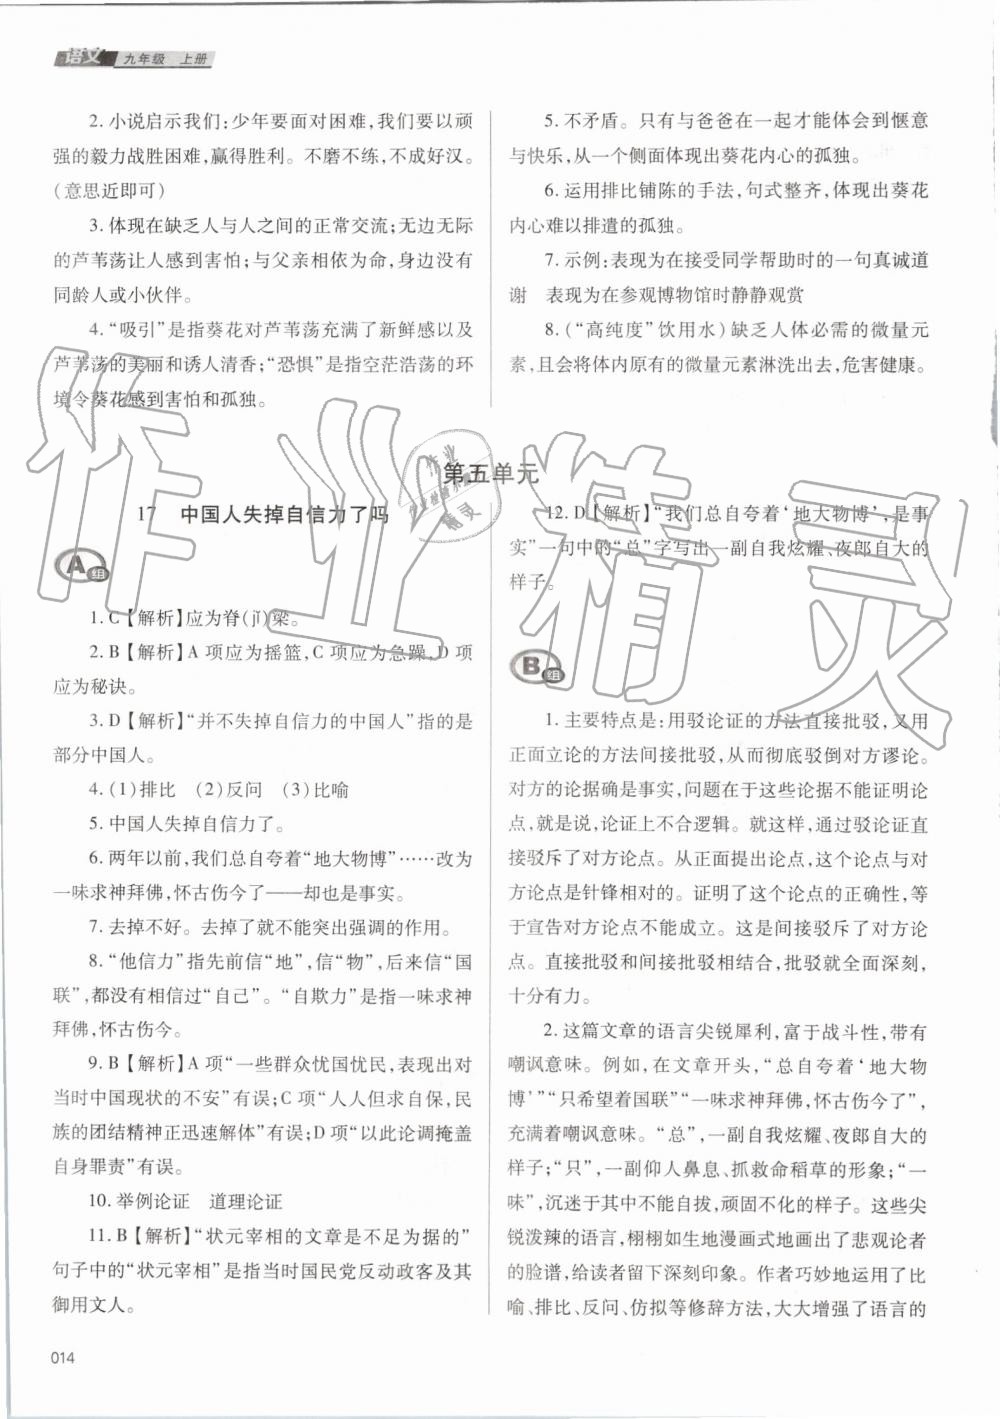 语文 九年级 上册
2. 小说启示我们:少年要面对困难,我们要以顽
强的毅力战胜困难,赢得胜利。不磨不练,不成好汉。
(意思近即可)
3. 体现在缺乏人与人之间的正常交流;无边无际
的芦苇荡让人感到害怕;与父亲相依为命,身边没有
同龄人或小伙伴。
4. “吸引”是指葵花对芦苇荡充满了新鲜感以及
芦苇荡的美丽和诱人清香;“恐惧”是指空茫浩荡的环
境令葵花感到害怕和孤独。
5. 不矛盾。只有与爸爸在一起才能体会到惬意
与快乐,从一个侧面体现出葵花内心的孤独。
6. 运用排比铺陈的手法,句式整齐,体现出葵花
内心难以排遣的孤独。
7. 示例:表现为在接受同学帮助时的一句真诚道
谢 表现为在参观博物馆时静静观赏
8. (“高纯度”饮用水)缺乏人体必需的微量元
素,且会将体内原有的微量元素淋洗出去,危害健康。
第五单元
17 中国人失掉自信力了吗
A组
1. C【解析】应为脊(jǐ)梁。
2. B【解析】A 项应为摇篮,C 项应为急躁,D 项
应为秘诀。
3. D【解析】“并不失掉自信力的中国人”指的是
部分中国人。
4. (1)排比 (2)反问 (3)比喻
5. 中国人失掉自信力了。
6. 两年以前,我们总自夸着“地大物博”……改为
一味求神拜佛,怀古伤今了——却也是事实。
7. 去掉不好。去掉了就不能突出强调的作用。
8. “他信力”指先前信“地”,信“物”,后来信“国
联”,都没有相信过“自己”。“自欺力”是指一味求神
拜佛,怀古伤今。
9. B【解析】A 项“一些群众忧国忧民,表现出对
当时中国现状的不安”有误;C 项“人人但求自保,民
族的团结精神正迅速解体”有误;D 项“以此论调掩盖
自身罪责”有误。
10. 举例论证 道理论证
11. B【解析】“状元宰相的文章是不足为据的”
句子中的“状元宰相”是指当时国民党反动政客及其
御用文人。
12. D【解析】“我们总自夸着‘地大物博’,是事
实”一句中的“总”字写出一副自我炫耀、夜郎自大的
样子。
B组
1. 主要特点是:用驳论证的方法直接批驳,又用
正面立论的方法间接批驳,从而彻底驳倒对方谬论。
对方的论据确是事实,问题在于这些论据不能证明论
点,就是说,论证上不合逻辑。就这样,通过驳论证直
接驳斥了对方论点。从正面提出论点,这个论点与对
方论点是针锋相对的。证明了这个论点的正确性,等
于宣告对方论点不能成立。这是间接驳斥了对方论
点。直接批驳和间接批驳相结合,批驳就全面深刻,
十分有力。
2. 这篇文章的语言尖锐犀利,富于战斗性,带有
嘲讽意味。例如,在文章开头,“总自夸着‘地大物
博’”“只希望着国联”“一味求神拜佛,怀古伤今了”,
充满着嘲讽意味。“总”,一副自我炫耀、夜郎自大的
样子;“只”,一副仰人鼻息、抓救命稻草的形象;“一
味”,沉迷于其中不能自拔,顽固不化的样子。这些尖
锐泼辣的语言,栩栩如生地漫画式地画出了悲观论者
的脸谱,给读者留下深刻印象。作者巧妙地运用了比
喻、排比、反问、仿拟等修辞方法,大大增强了语言的
014
作业精灵